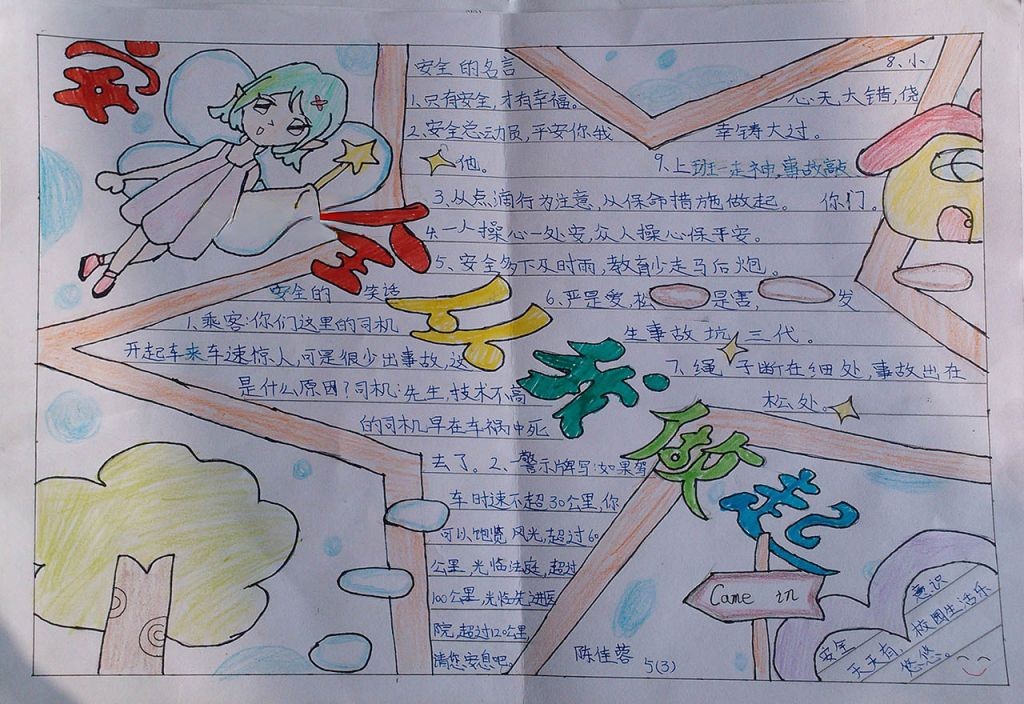 安全
从我做起
安全的名言
1.只有安全,才有幸福。
2.安全总动员,平安你我
他。
3.从点滴行为注意,从保命措施做起。
4.一人操心一处安,众人操心保平安。
5、安全多下及时雨,教育少走马后炮。
6.严是爱,松是害,发
生事故坑三代。
7.绳子断在细处,事故出在
松处。
8、小
心天大错,侥
幸铸大过。
9.上班一走神,事故敲
你门。
安全的笑话
1.乘客:你们这里的司机
开起车来车速惊人,可是很少出事故,这
是什么原因?司机:先生,技术不高
的司机早在车祸中死
去了。2、一警示牌写:如果驾
车时速不超30公里,你
可以饱览风光,超过60
公里,光临法庭,超过
100公里,光临先进医
院,超过120公里,
请您安息吧。
陈佳蓉 5(3)
Came in
安全意识
天天有,校园生活乐
悠悠。